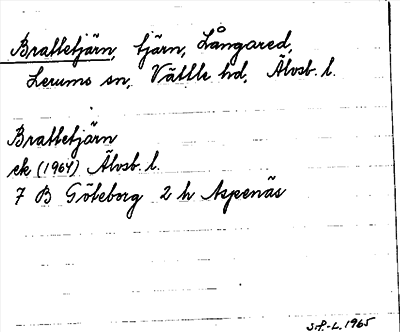 Brattetjärn, tjärn, Långared,
Lerums sn, Vättle hd, Älvsb. l.
Brattetjärn
ek (1964) Älvsb. l.
7 B Göteborg 2 h Aspenäs
S.P.-L. 1965